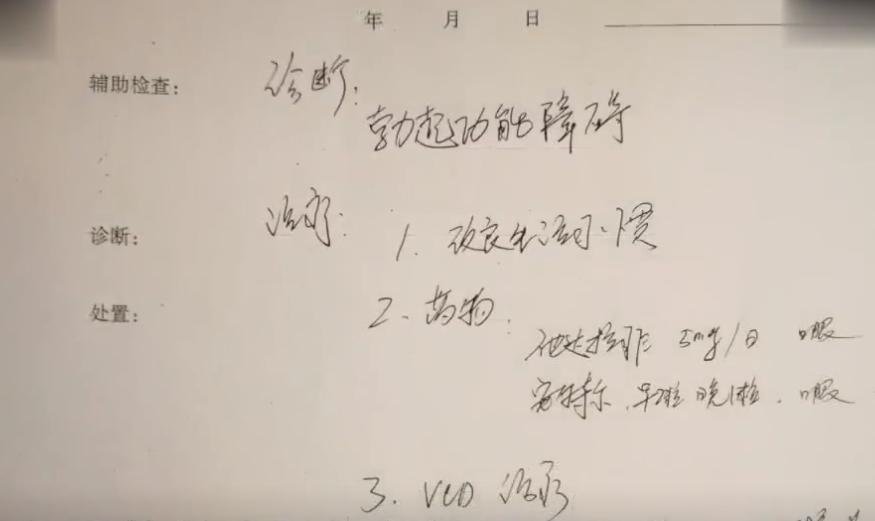 年 月 日
辅助检查: 诊断:
勃起功能障碍
诊断: 治疗: 1. 改良生活习惯
处置: 2. 药物:
他达拉非 5mg/日 口服
安特尔 早2粒 晚1粒. 口服
3. VCD 治疗